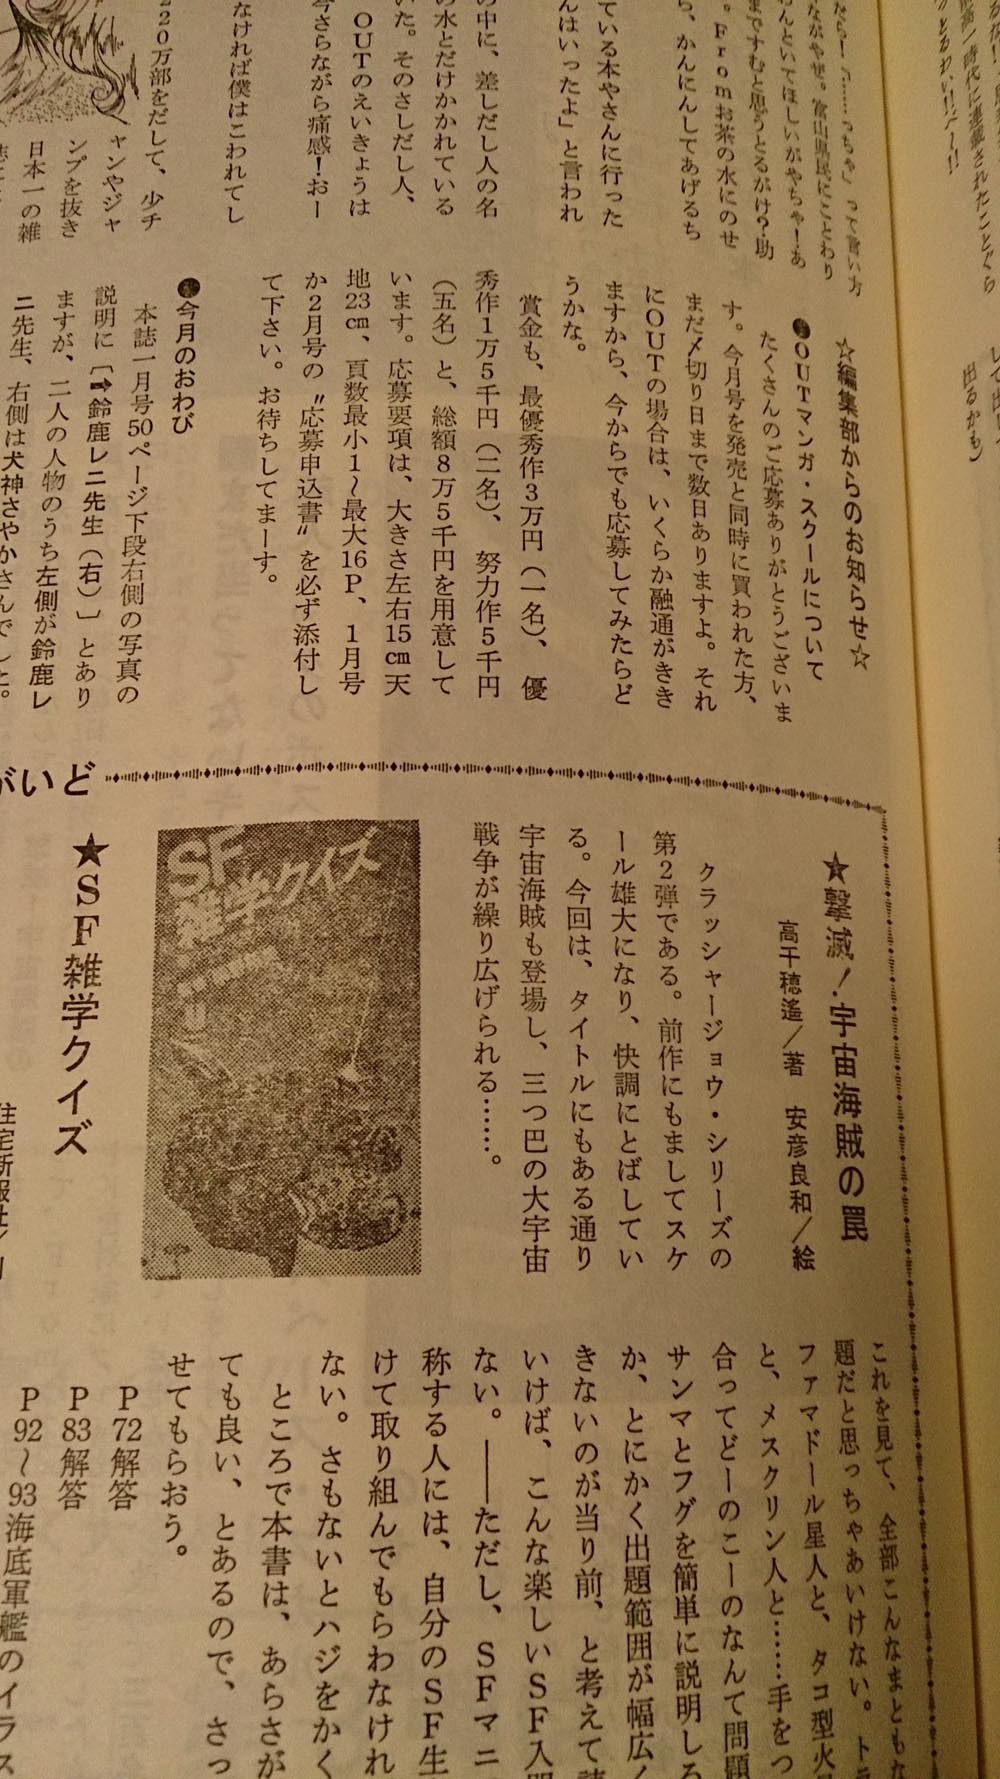 だら！
って言い方
ながやぜ。富山県民にことわり
わんといてほしいがやちゃ！あ
までですむと思うとるがけ？助
。Ｆｒｏｍお茶の水にのせ
ら、かんにんしてあげるち
ている本やさんに行った
んはいったよ」と言われ
の中に、差しだし人の名
の水とだけかかれている
いた。そのさしだし人、
ＯＵＴのえいきょうは
今さらながら痛感！おー
なければ僕はこわれてし
220万部をだして、少チ
ャンやジャ
ンプを抜き
日本一の雑
☆編集部からのお知らせ☆
●ＯＵＴマンガ・スクールについて
たくさんのご応募ありがとうございま
す。今月号を発売と同時に買われた方、
まだ〆切り日まで数日ありますよ。それ
にＯＵＴの場合は、いくらか融通がきき
ますから、今からでも応募してみたらど
うかな。
賞金も、最優秀作３万円（一名）、優
秀作１万５千円（二名）、努力作５千円
（五名）と、総額８万５千円を用意して
います。応募要項は、大きさ左右15㎝天
地23㎝、頁数最小１〜最大16Ｐ、１月号
か２月号の〝応募申込書〟を必ず添付し
て下さい。お待ちしてまーす。
●今月のおわび
本誌一月号50ページ下段右側の写真の
説明に〔➡鈴鹿レニ先生（右）〕とあり
ますが、二人の人物のうち左側が鈴鹿レ
ニ先生、右側は犬神さやかさんでした。
がいど
★撃滅！宇宙海賊の罠
高千穂遙／著　安彦良和／絵
クラッシャージョウ・シリーズの
第２弾である。前作にもましてスケ
ール雄大になり、快調にとばしてい
る。今回は、タイトルにもある通り
宇宙海賊も登場し、三つ巴の大宇宙
戦争が繰り広げられる……。
SF
雑学クイズ
★ＳＦ雑学クイズ
住宅新報社／
これを見て、全部こんなまともな
題だと思っちゃあいけない。トラ
ファマドール星人と、タコ型火
と、メスクリン人と……手をつ
合ってどーのこーのなんて問題
サンマとフグを簡単に説明しろ
か、とにかく出題範囲が幅広く
きないのが当り前、と考えて
いけば、こんな楽しいＳＦ入門
ない。――ただし、ＳＦマニ
称する人には、自分のＳＦ生
けて取り組んでもらわなけれ
ない。さもないとハジをかく
ところで本書は、あらさが
ても良い、とあるので、さっ
せてもらおう。
Ｐ72解答
Ｐ83解答
Ｐ92〜93海底軍艦のイラス